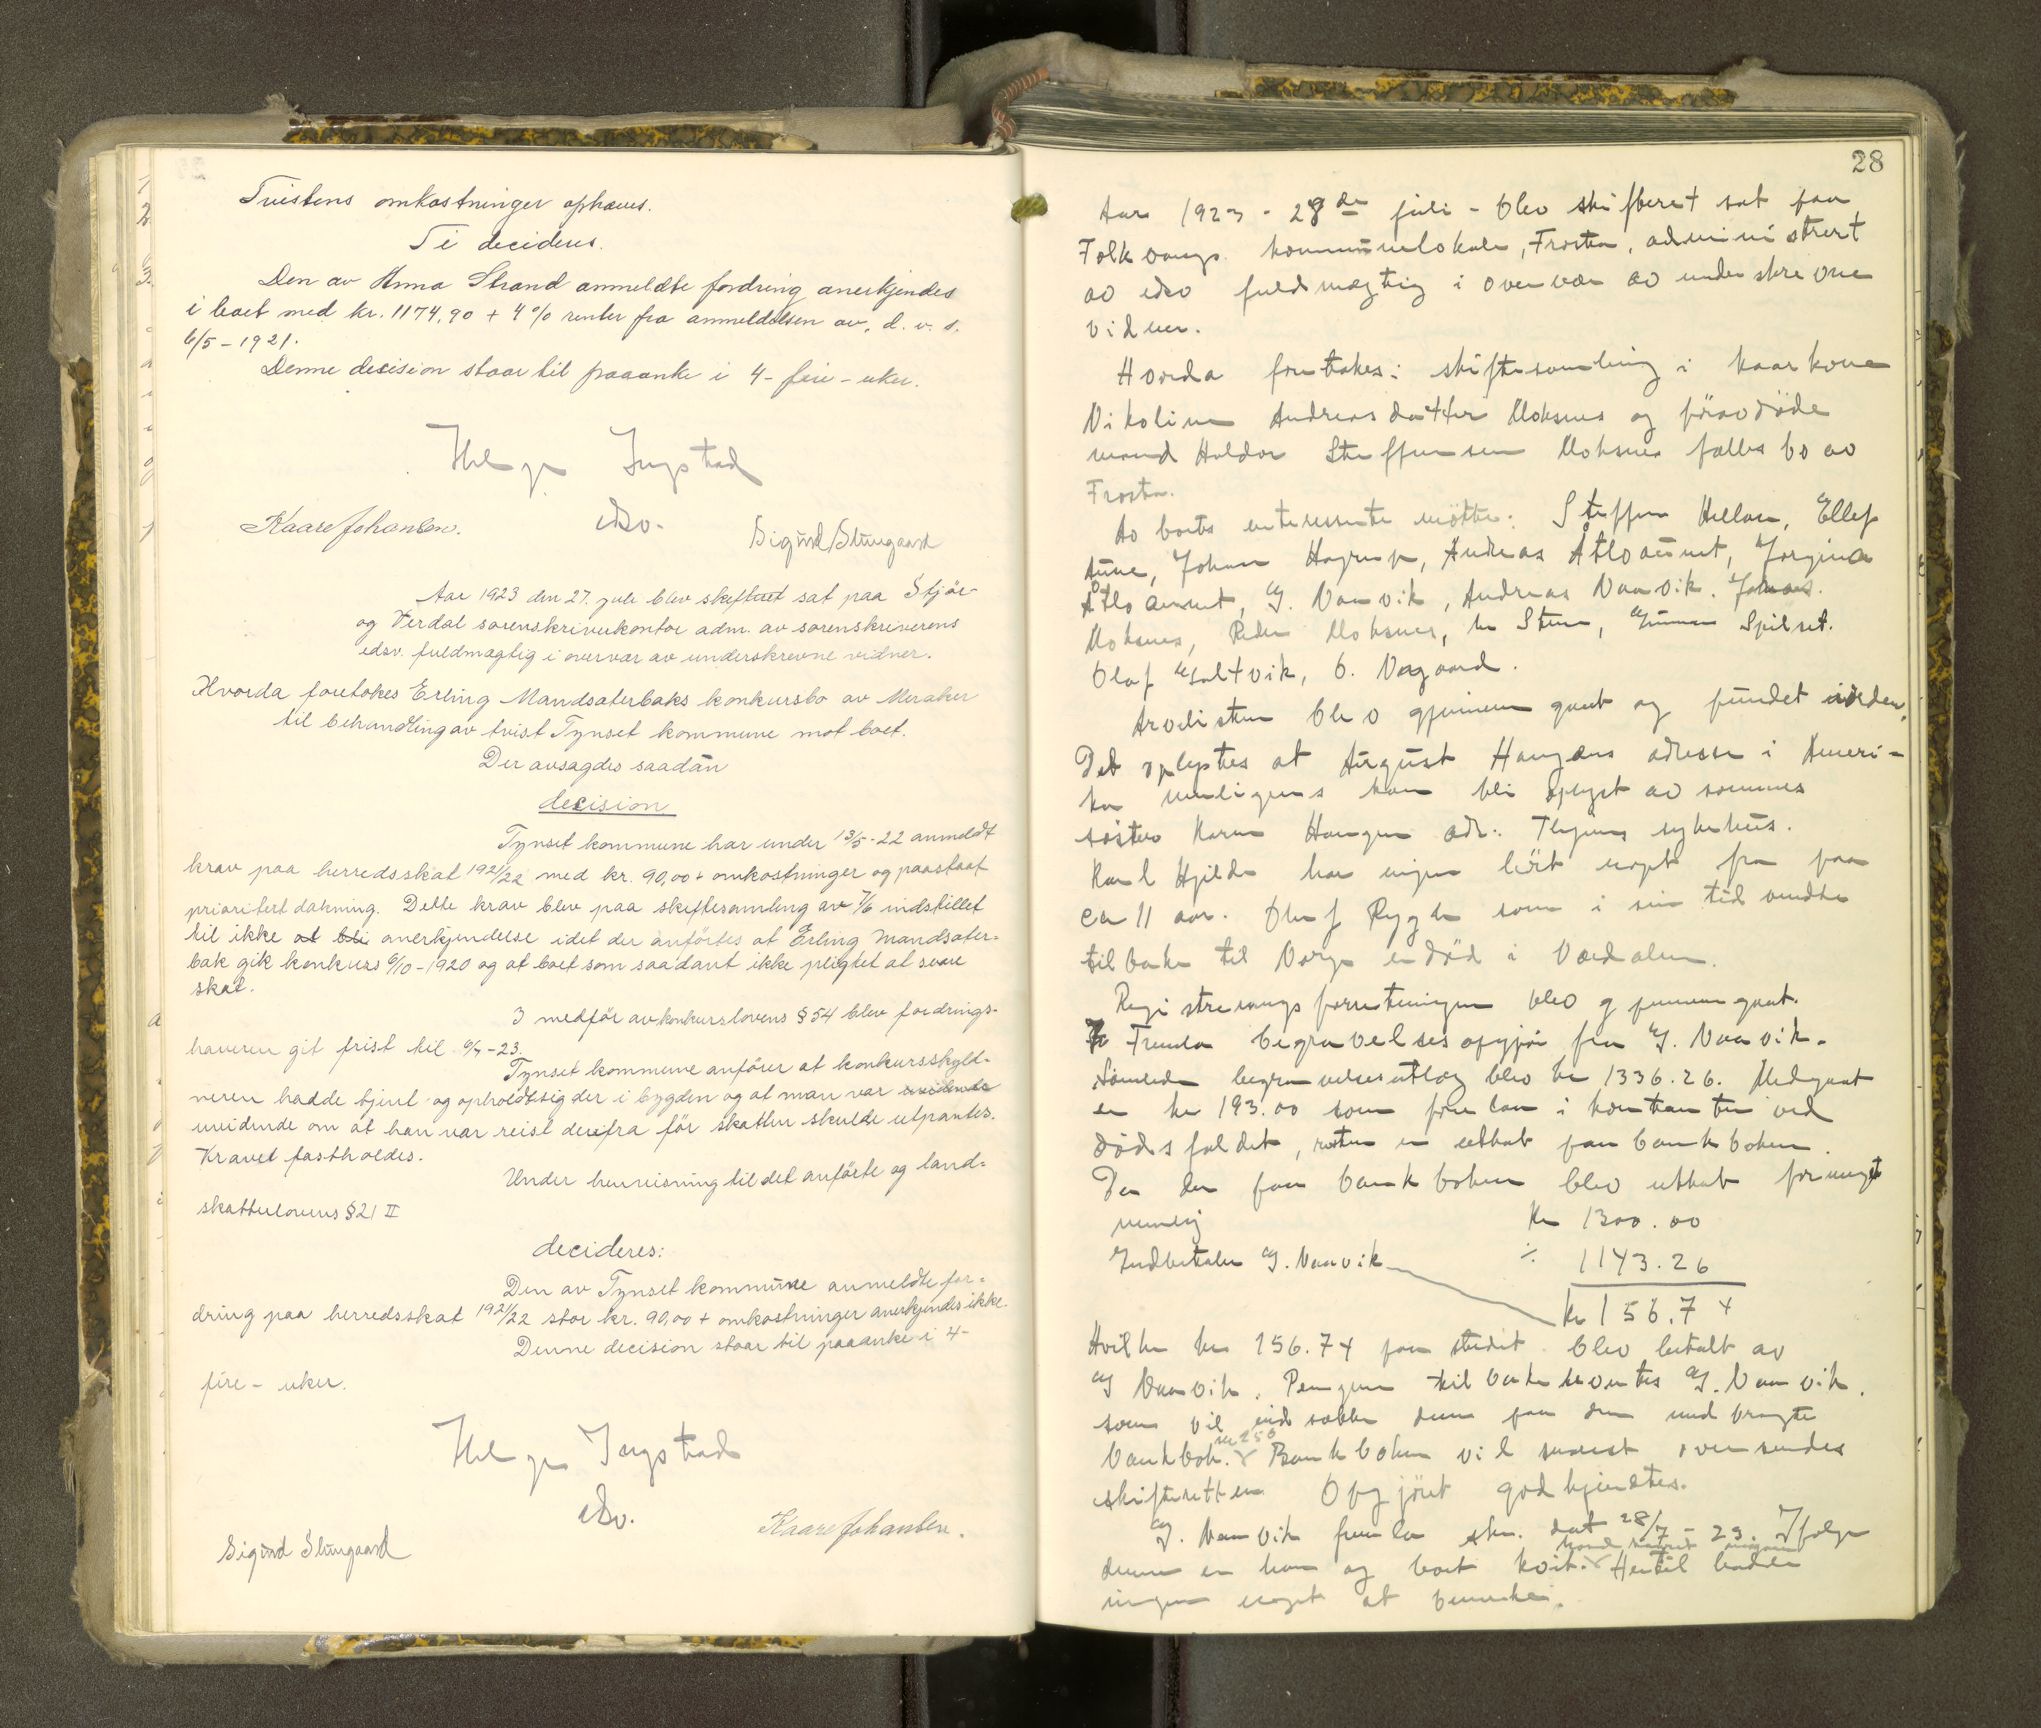 Tvistens omkostninger ophæves.
Ti decideres.
Den av Anna Strand anmeldte fordring anerkjendes
i boet med kr. 1174,90 + 4 % renter fra anmeldelsen av, d. v. s.
6/5 - 1921.
Denne decision staar til paaanke i 4 - fire - uker.
Helge Ingstad
edsv.
Kaare Johansen.
Sigurd Stuugaard
Aar 1923 den 27. juli blev skifteret sat paa Stjør-
og Verdal sorenskriverkontor adm. av sorenskriverens
edsv. fuldmægtig i overvær av underskrevne vidner.
Hvorda foretokes Erling Mandsæterbaks konkursbo av Meraker
til behandling av tvist Tynset kommune mot boet.
Der avsagdes saadan
decision
Tynset kommune har under 13/5 - 22 anmeldt
krav paa herredsskat 1921/22 med kr. 90,00 + omkostninger og paastaat
prioritert dækning. Dette krav blev paa skiftesamling av 7/6 indstillet
til ikke at bli anerkjendelse idet der anførtes at Erling Mandsæter-
bak gik konkurs 6/10 - 1920 og at boet som saadant ikke pligtet at svare
skat.
I medfør av konkurslovens § 54 blev fordrings-
haveren git frist til 6/7 - 23.
Tynset kommune anfører at konkursskyld-
neren hadde hjem og opholdt sig der i bygden og at man var uvidende
uvidende om at han var reist derifra før skatten skulde utpantes.
Kravet fastholdes.
Under henvisning til det anførte og land-
skattelovens § 21 II
decideres:
Den av Tynset kommune anmeldte for-
dring paa herredsskat 1921/22 stor kr. 90,00 + omkostninger anerkjendes ikke.
Denne decision staar til paaanke i 4 -
fire - uker.
Helge Ingstad
edsv.
Sigurd Stuugaard
Kaare Johansen.
28
Aar 1923 - 28de juli - blev skifteret sat paa
Folkvangs kommunelokale, Frosta, administrert
av edsv fuldmægtig i overvær av underskrevne
vidner.
Hvorda foretokes: skiftesamling i kaarkone
Nikoline Andreasdatter Moksnes og føravdøde
mand Haldor Steffensen Moksnes fælles bo av
Frosta.
Av boets interessenter møtte: Steffen Hellan, Ellef
Aune, Johan Hagrup, Andreas Atloaunet, Jorgina
Atloaunet, G. Naavik, Andreas Naavik. Johas.
Moksnes, Peder Moksnes, Gunnar Spilset.
Olaf Galtvik, O. Vagaard.
Arvelisten blev gjennemgaat og fundet iorden.
Det oplystes at August Haugens adresse i Ameri-
ka muligens kan bli oplyst av sammes
søster Karen Haugen adr. sykehus.
Karl Hjelde har ingen hørt noget fra paa
ca 11 aar. Olaf Rygde som i sin tid vendte
tilbake til Norge er død i Værdalen.
Registreringsforretningen blev gjennemgaat.
Fremla begravelsesopgjør fra G. Naavik.
Samlede begravelsesutlæg blev kr 1336.26. Medgaat
er kr 193.00 som forelaa i kontanter ved
dødsfaldet, resten er uttat paa bankboken.
Da der paa bankboken blev uttat formeget
nemlig Kr 1300.00
Indbetaler G. Naavik ÷ 1143.26
kr 156.74
Hvilke kr 156.74 paa stedet blev betalt av
G Naavik. Pengene tilbakelevertes G. Naavik.
som vil indsætte dem paa den medbragte
bankbok. nr 256 Bankboken vil snarest oversendes
skifteretten. Opgjøret godkjendtes.
G. Naavik fremla skr. dat 28/7 - 23. Ifølge
denne er han og boet kvit. Hertil hadde
ingen noget at bemerke.